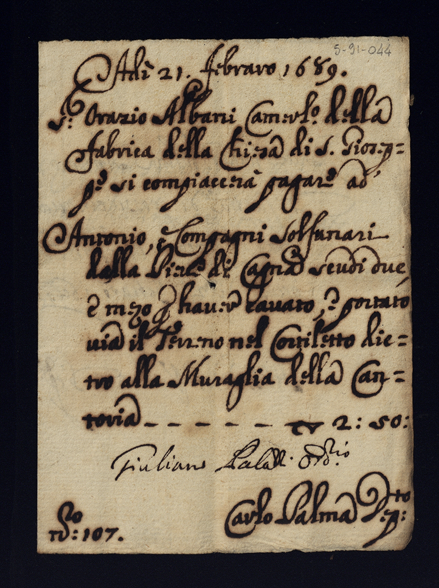 5-91-044
Adì 21. Febraro 1689.
Sr. Orazio Albani Camerlo. della
fabrica della Chiesa di S. Giosep=
pe si compiacerà pagare ad
Antonio, e Compagni Solfanari
dalla di Cagnà scudi due,
e mezo p haver cavato, e portato
via il Terreno nel Cortiletto die=
tro alla Muraglia della Can=
toria - - - - - - - 2: 50:
Giuliano
No: 107.
Carlo Palma Depto: